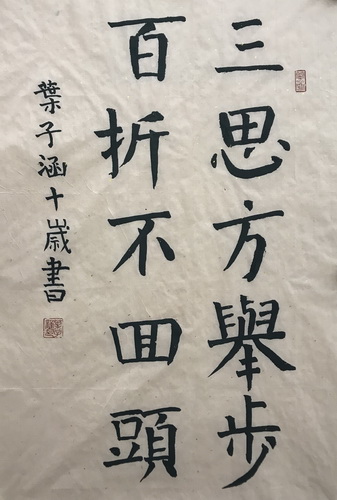 三思方舉步
百折不回頭
葉子涵十歲書